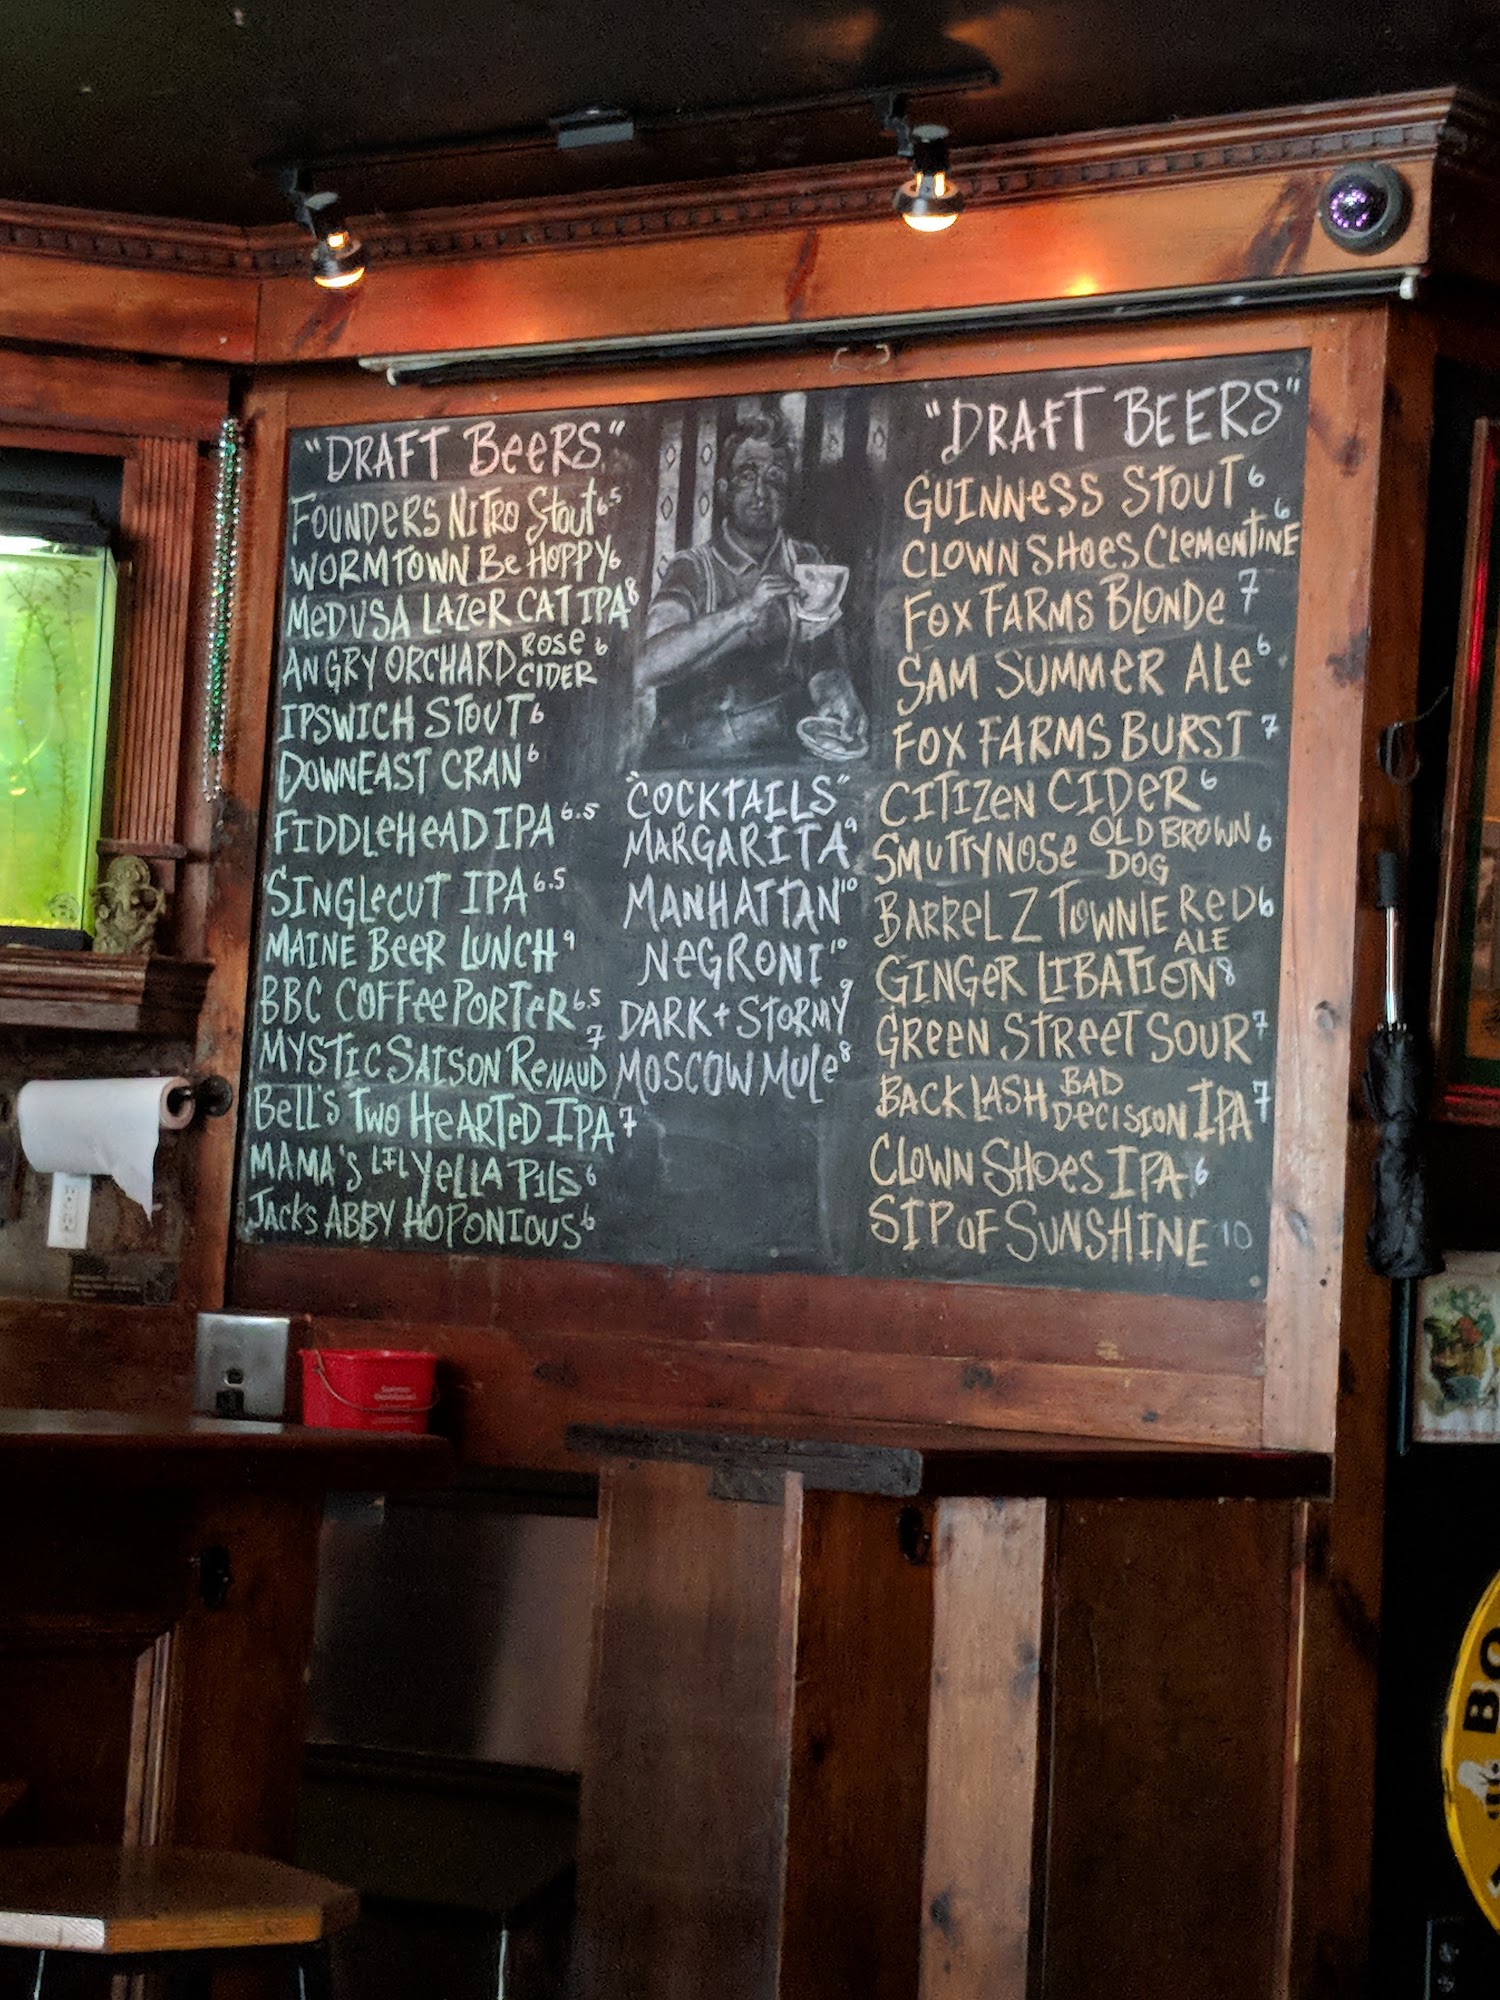 "DRAFT BEERS"
FOUNDERS NITRO STOUT 6.5
WORMTOWN Be HOPPY 6
MEDUSA LAZER CAT IPA 8
ANGRY ORCHARD ROSE CIDER 6
IPSWICH STOUT 6
DOWNEAST CRAN 6
FIDDLEHEAD IPA 6.5
SINGLECUT IPA 6.5
MAINE BEER LUNCH 9
BBC COFFEE PORTER 6.5
MYSTIC SAISON RENAUD 7
BELL'S TWO HEARTED IPA 7
MAMA'S LIL YELLA PILS 6
JACKS ABBY HOPONIOUS 6
"COCKTAILS"
MARGARITA 9
MANHATTAN 10
NEGRONI 10
DARK + STORMY 9
MOSCOW MULE 8
"DRAFT BEERS"
GUINNESS STOUT 6
CLOWN SHOES CLEMENTINE 6
FOX FARMS BLONDE 7
SAM SUMMER ALE 6
FOX FARMS BURST 7
CITIZEN CIDER 6
SMUTTYNOSE OLD BROWN DOG 6
BARREL Z TOWNIE RED ALE 6
GINGER LIBATION 8
GREEN STREET SOUR 7
BACKLASH BAD DECISION IPA 7
CLOWN SHOES IPA 6
SIP OF SUNSHINE 10
BO